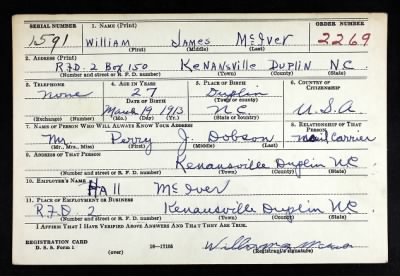 SERIAL NUMBER 1. NAME (Print) ORDER NUMBER
1591 William James McIver 2269
(First) (Middle) (Last)
2. ADDRESS (Print)
R.F.D. 2 Box 150 Kenansville Duplin N.C.
(Number and street or R. F. D. number) (Town) (County) (State)
3. TELEPHONE 4. AGE IN YEARS 5. PLACE OF BIRTH 6. COUNTRY OF CITIZENSHIP
None 27 Duplin
DATE OF BIRTH (Town or county)
March 19 1913 N.C. U.S.A
(Exchange) (Number) (Mo.) (Day) (Yr.) (State or country)
7. NAME OF PERSON WHO WILL ALWAYS KNOW YOUR ADDRESS 8. RELATIONSHIP OF THAT PERSON
Mr. Perry J. Dobson mail Carrier
(Mr., Mrs., Miss) (First) (Middle) (Last)
9. ADDRESS OF THAT PERSON
Kenansville Duplin N.C.
(Number and street or R. F. D. number) (Town) (County) (State)
10. EMPLOYER'S NAME
Hall McIver
11. PLACE OF EMPLOYMENT OR BUSINESS
R.F.D. 2 Kenansville Duplin N.C.
(Number and street or R. F. D. number) (Town) (County) (State)
I AFFIRM THAT I HAVE VERIFIED ABOVE ANSWERS AND THAT THEY ARE TRUE.
REGISTRATION CARD
D. S. S. Form 1 (over) 16-17105
(Registrant's signature)